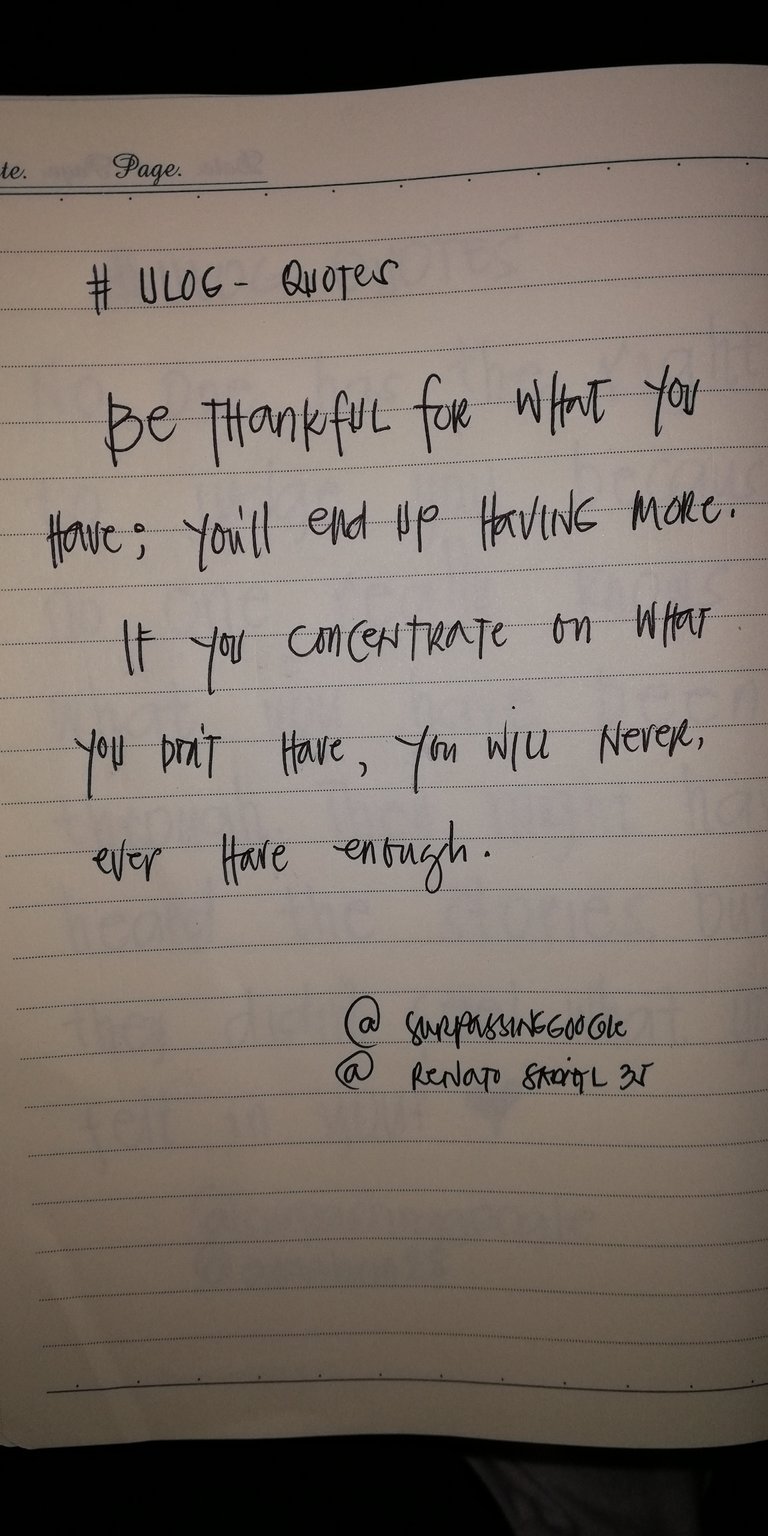 te. Page.
# ULOG - QUOTES
Be THankfUL foR WHaT YOU
Have; You'll end UP HAVING MORe.
If you CONCENTRATE on WHaT
you DON'T Have, You WILL NeveR,
ever Have enough.
@ SURPASSINGGOOGle
@ ReNaTO